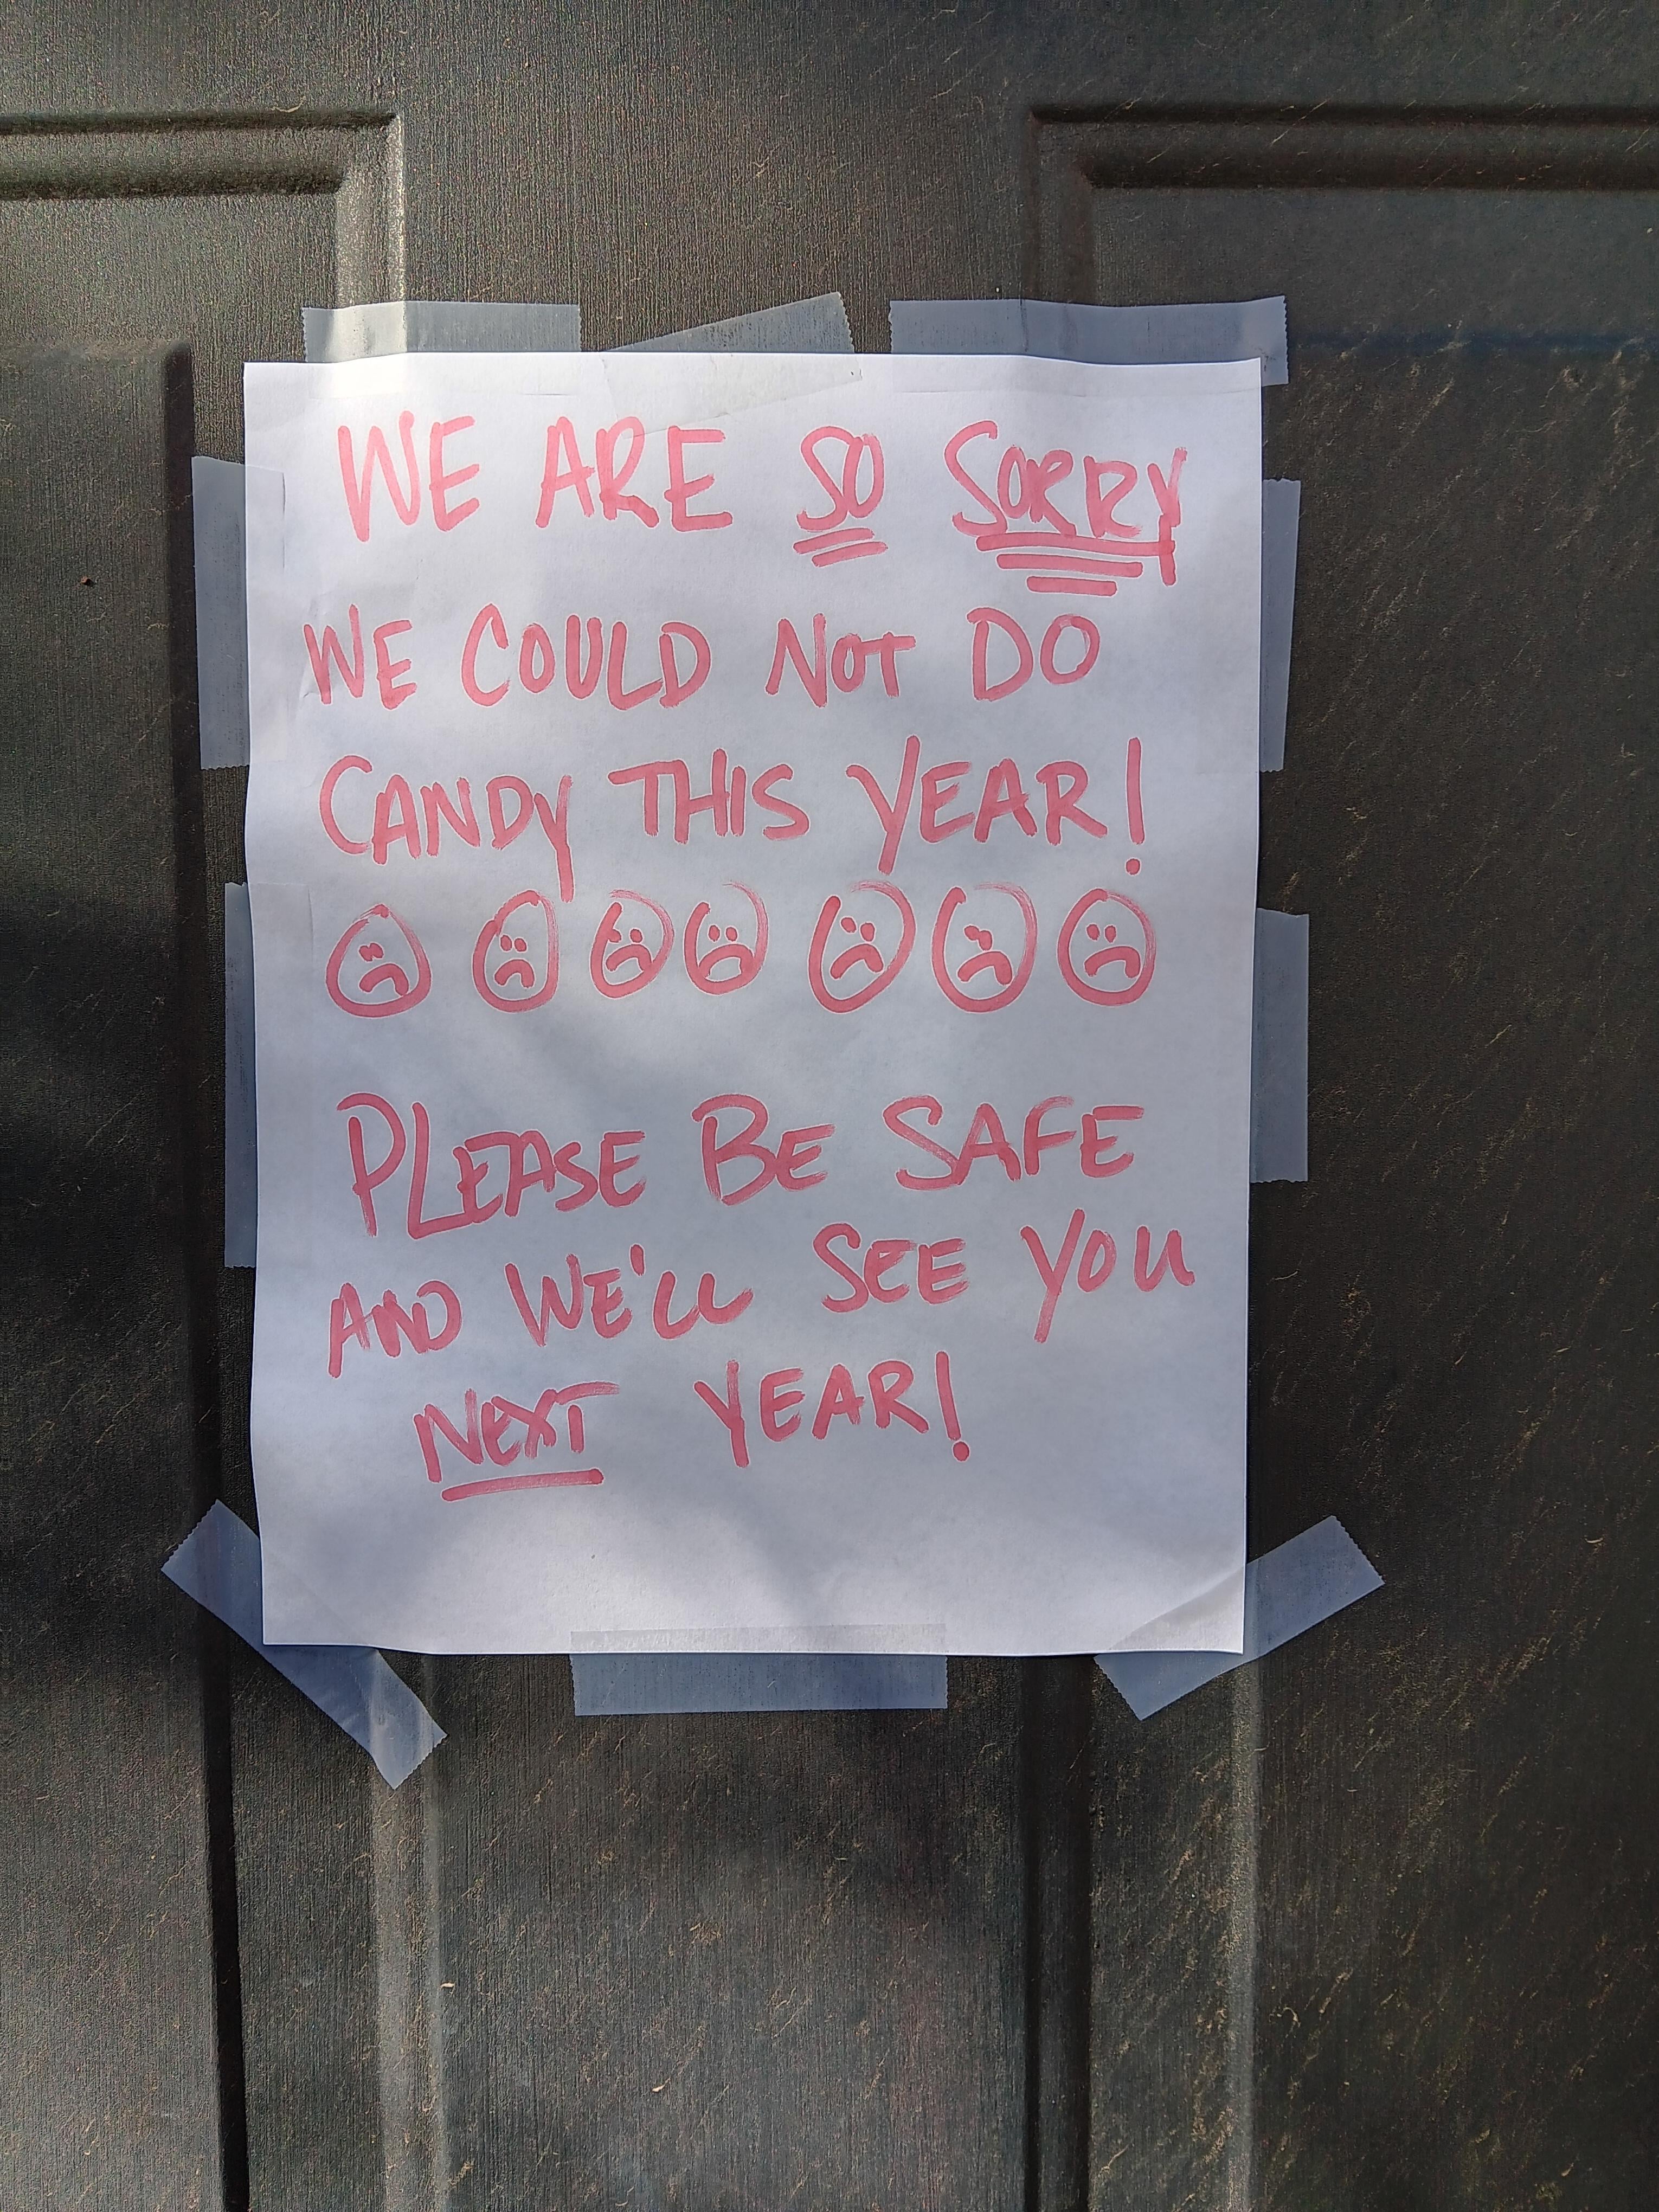 WE ARE SO SORRY
WE COULD NOT DO
CANDY THIS YEAR!
PLEASE BE SAFE
AND WE'LL SEE YOU
NEXT YEAR!